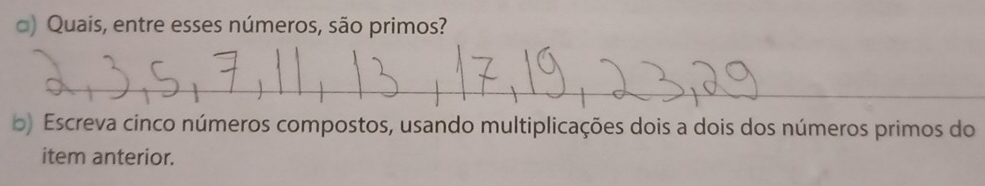 a) Quais, entre esses números, são primos?
2, 3, 5, 7, 11, 13, 17, 19, 23, 29
b) Escreva cinco números compostos, usando multiplicações dois a dois dos números primos do
item anterior.